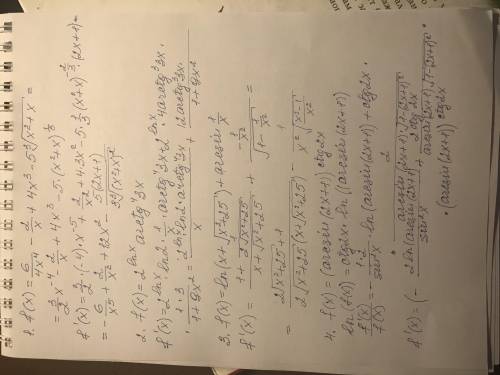 1. f(x) = 6/4x⁴ - 2/x + 4x³ - 5∛(x²+x) =
= 3/2 x⁻⁴ - 2/x + 4x³ - 5·(x²+x)^(1/3)
f'(x) = 3/2·(-4)·x⁻⁵ + 2/x² + 4·3x² - 5·1/3(x²+x)^(-2/3)·(2x+1) =
= -6/x⁵ + 2/x² + 12x² - 5(2x+1)/(3∛(x²+x)²)
2. f(x) = 2^(ln x) · arctg⁴3x
f'(x) = 2^(ln x) · ln2 · 1/x · arctg⁴3x + 2^(ln x) · 4arctg³3x ·
· 3/(1+9x²) = 2^(ln x) ln2 · arctg⁴3x / x + 12arctg³3x / (1+9x²)
3. f(x) = ln(x+√(x²+25)) + arcsin 1/x
f'(x) = (1 + 2√(x²+25)) / (x+√(x²+25)) + (-1/x²) / √(1-1/x²) =
= (2√(x²+25)+1) / (2√(x²+25)(x+√(x²+25))) - 1/(x²√((x²-1)/x²))
4. f(x) = (arcsin(2x+1))^(ctg2x)
ln(f(x)) = ctg2x · ln(arcsin(2x+1))
f'(x)/f(x) = -1·2/sin²2x · ln(arcsin(2x+1)) + ctg2x ·
· 2/(arcsin(2x+1)·√(1-(2x+1)²))
f'(x) = (-2ln(arcsin(2x+1))/sin²2x + 2ctg2x/(arcsin(2x+1)√(1-(2x+1)²)) ·
· (arcsin(2x+1))^(ctg2x)